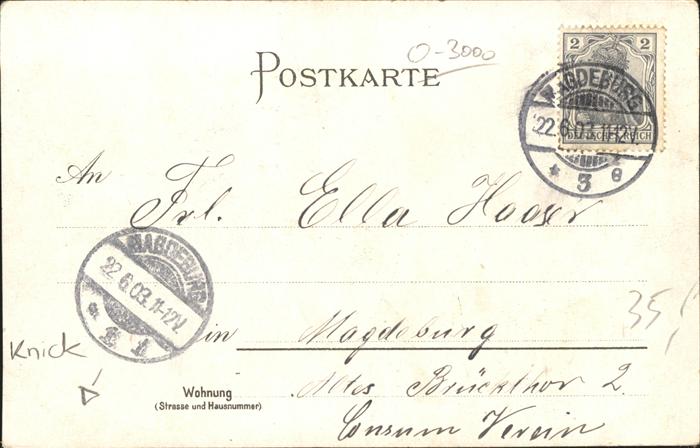 O-3000
POSTKARTE
2 2
DEUTSCHES REICH
MAGDEBURG
22.6.03.11-12V.
* 3 e
An
Frl. Ella Hooser
MAGDEBURG
22.6.03.11-12V.
in Magdeburg
35,
Knick
Wohnung
(Strasse und Hausnummer)
Altes Brückthor 2
Consum Verein